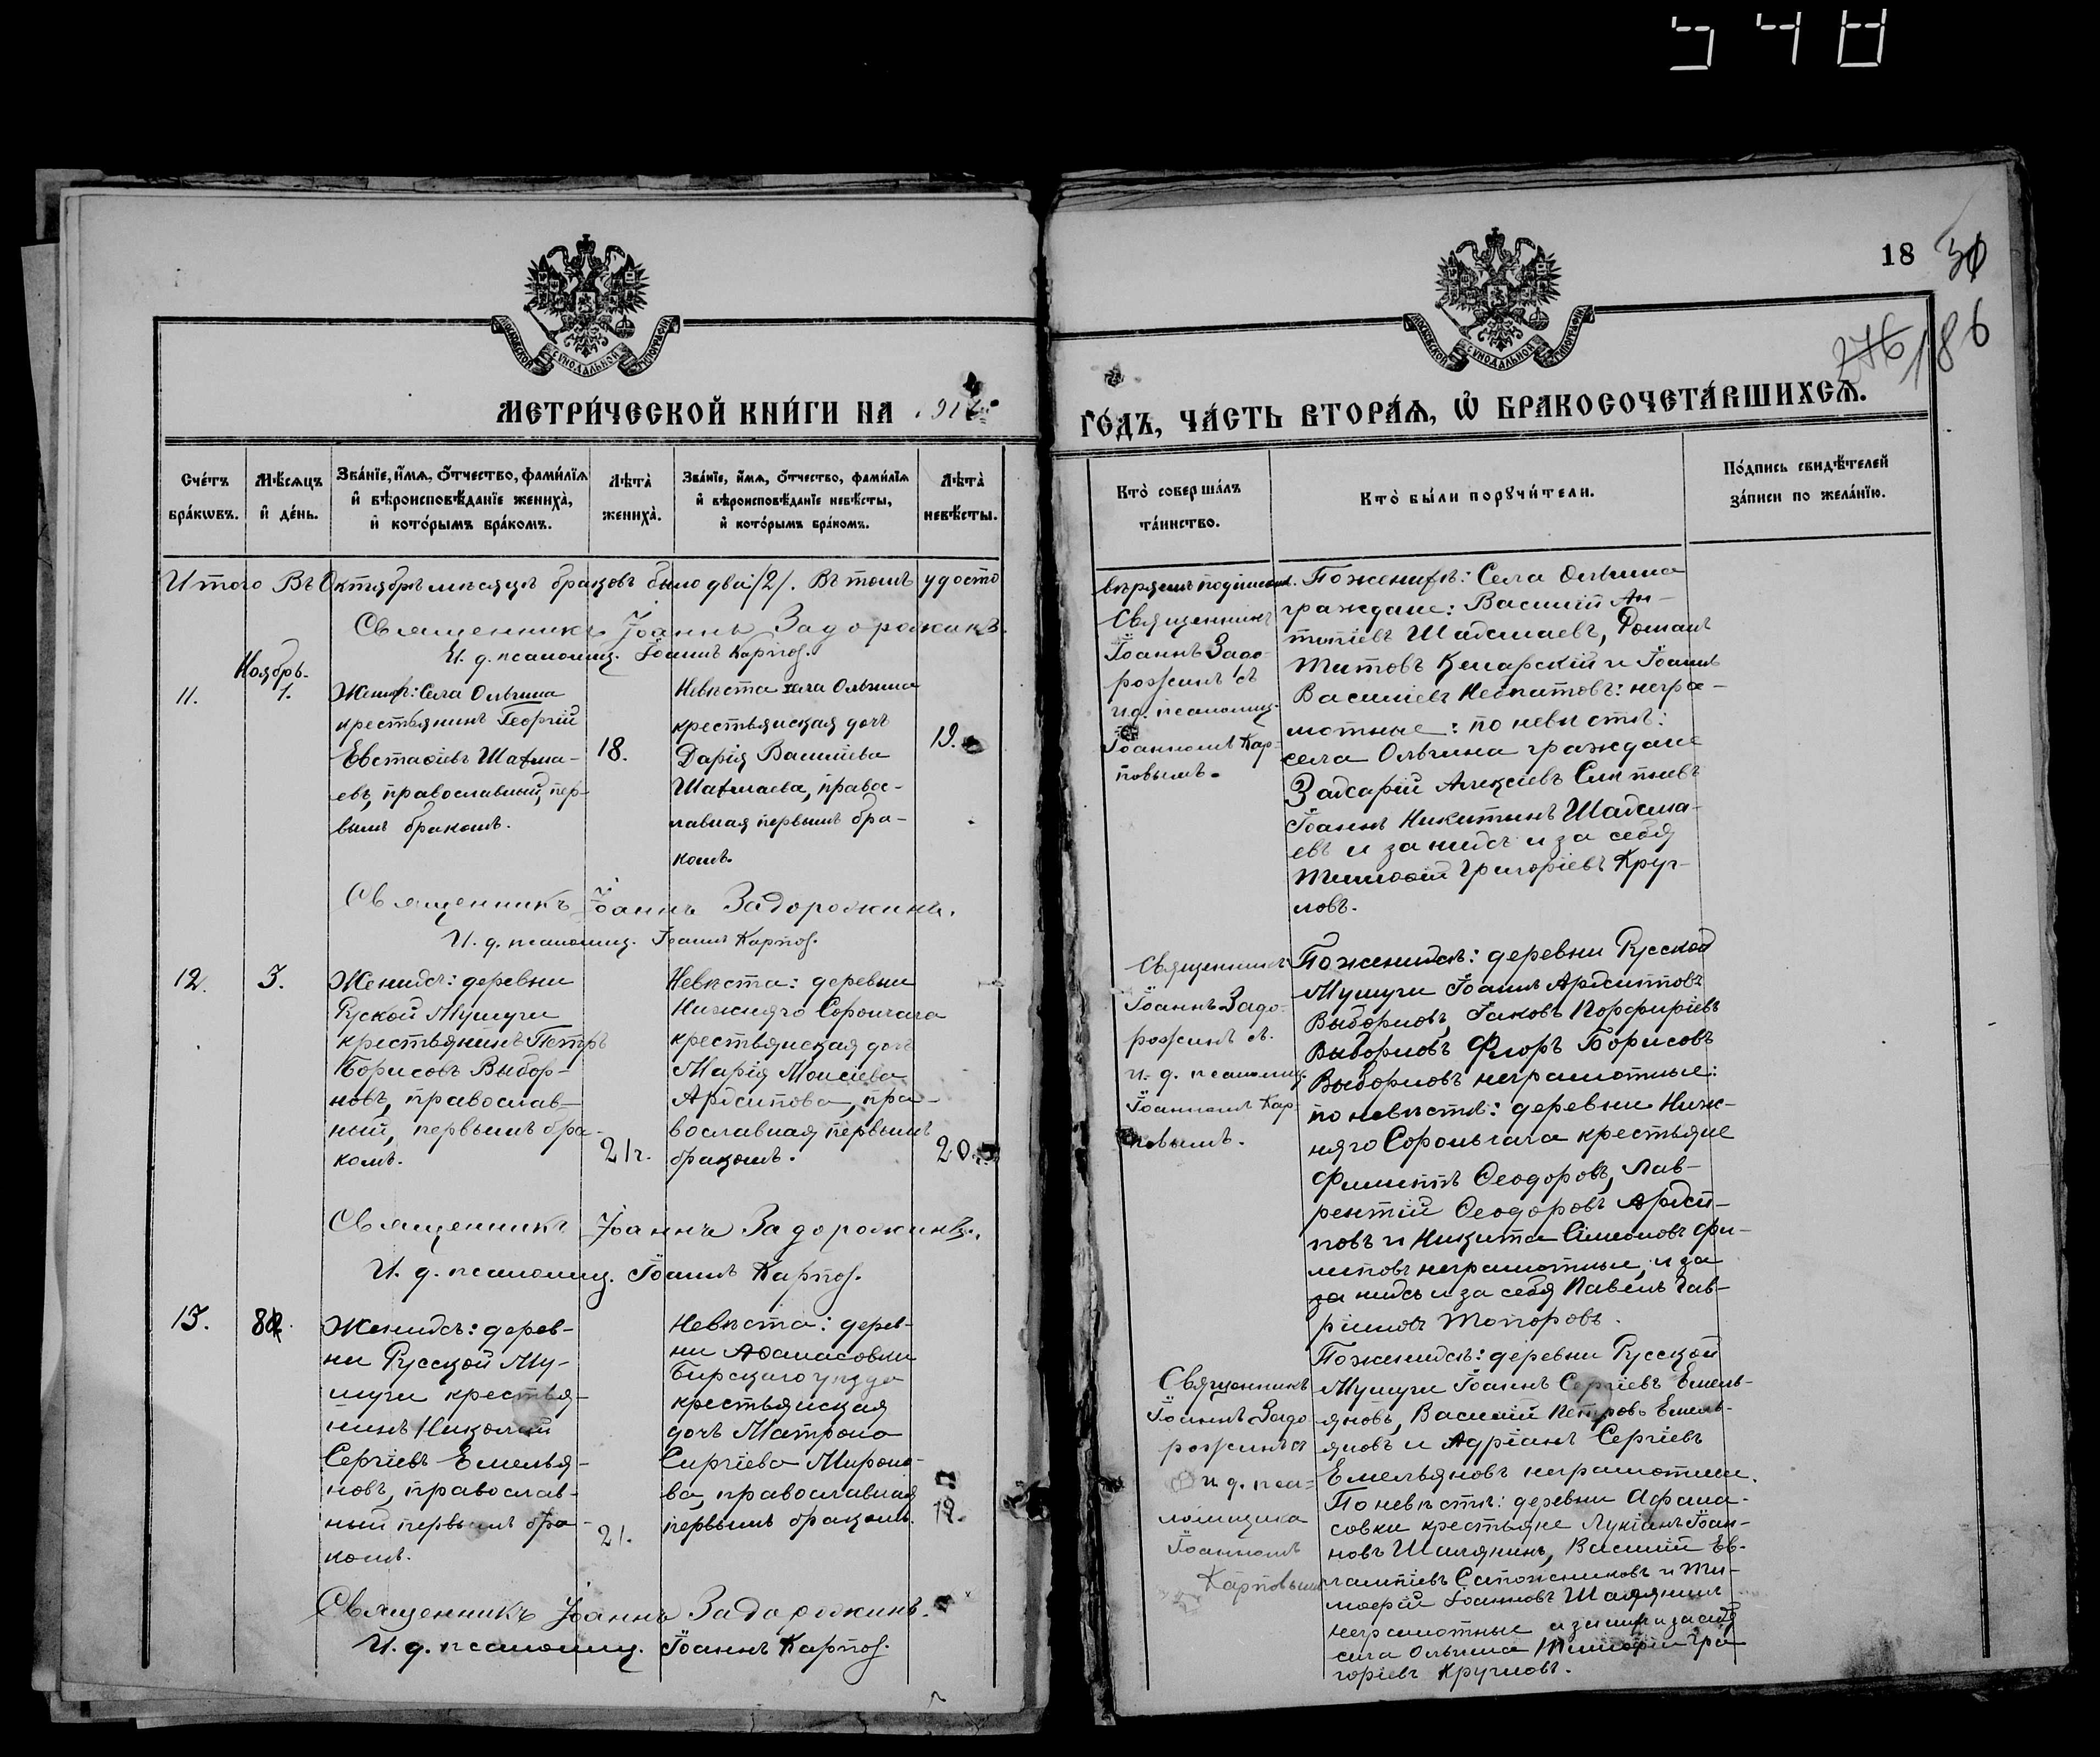 548
18 31
276 186
МОСКОВСКОЙ СѴНОДАЛЬНОЙ ТИПОГРАФІИ
МОСКОВСКОЙ СѴНОДАЛЬНОЙ ТИПОГРАФІИ
МЕТРИ́ЧЕСКОЙ КНИ́ГИ НА
ГО́ДЪ, ЧА́СТЬ ВТОРА́Ѧ, Ѡ҆ БРАКОСОЧЕТА́ВШИХСѦ.
Сче́тъ бра́кѡвъ.
Мѣ́сѧцъ и҆ де́нь.
Зва́нїе, и҆́мѧ, ѻ҆́тчество, фами́лїѧ и҆ вѣроисповѣ́данїе жениха̀, и҆ кото́рымъ бра́комъ.
Лѣта̀ жениха̀.
Зва́нїе, и҆́мѧ, ѻ҆́тчество, фами́лїѧ и҆ вѣроисповѣ́данїе невѣ́сты, и҆ кото́рымъ бра́комъ.
Лѣта̀ невѣ́сты.
Кто̀ соверша́лъ та́инство.
Кто̀ бы́ли порꙋчи́тели.
По́дпись свидѣ́телей за́писи по жела́нїю.
Итого Въ Октябрѣ мѣсяцѣ браковъ было два /2/. Въ томъ удосто
вѣряемъ подписью.
Священникъ Іоаннъ Задорожинъ.
И. д. псаломщ. Іоаннъ Карпов.
Ноябрь.
11.
1.
Женихъ: Села Ольгина
крестьянинъ Георгій
Евстафіевъ Шахма-
евъ, православный, пер-
вымъ бракомъ.
18.
Невѣста села Ольгина
крестьянская дочь
Дарія Василіева
Шахмаева, правос-
лавная первымъ бра-
комъ.
19.
Священникъ
Іоаннъ Задо-
рожинъ съ
и. д. псаломщ.
Іоанномъ Кар-
повымъ.
По женихѣ: Села Ольгина
граждане: Василій Ан-
типіевъ Шахмаевъ, Романъ
Титовъ и Іоаннъ
Василіевъ : негра-
мотные: по невѣстѣ:
села Ольгина граждане
Захарій Алексіевъ
Іоаннъ Никитинъ Шахма-
евъ и за нихъ и за себя
Тимофій Григоріевъ Круг-
ловъ.
Священникъ Іоаннъ Задорожинъ.
И. д. псаломщ. Іоаннъ Карпов.
12.
3.
Женихъ: деревни
Руской Мушуги
крестьянинъ Петръ
Борисовъ Выбор-
новъ, православ-
ный, первымъ бра-
комъ.
21 г.
Невѣста: деревни
Нижняго Сорончага
крестьянская дочь
Марія Моисіева
Архипова, пра-
вославная первымъ
бракомъ.
20
Священникъ
Іоаннъ Задо-
рожинъ съ.
и. д. псаломщ.
Іоанномъ Кар-
повымъ.
По женихѣ: деревни Русской
Мушуги Іоаннъ Архиповъ
Выборновъ, Іаковъ Порфиріевъ
Выборновъ Флоръ Борисовъ
Выборновъ неграмотные:
по невѣстѣ: деревни Ниж-
няго Сорончага крестьяне
Филиппъ Ѳеодоровъ, Лав-
рентій Ѳеодоровъ Архи-
повъ и Никита Симеоновъ Фи-
липовъ неграмотные, и за
за нихъ и за себя Павелъ Гав-
риловъ Топоровъ.
Священникъ Іоаннъ Задорожинъ.
И. д. псаломщ. Іоаннъ Карпов.
13.
8
Женихъ: дерев-
ни Русской Му-
шуги крестья-
нинъ Николай
Сергіевъ Емелья-
новъ, православ-
ный первымъ бра-
комъ.
21.
Невѣста: дерев-
ни Аѳанасовки
Бирскаго уѣзда
крестьянская
дочь Матрона
Сиргіева Мироно-
ва, православная
первымъ бракомъ.
19.
Священникъ
Іоаннъ Задо-
рожинъ съ
и. д. пса-
ломщика
Іоанномъ
Карповымъ
По женихѣ: деревни Русской
Мушуги Іоаннъ Сергіевъ Емель-
яновъ, Василій Петровъ Емель-
яновъ и Адріанъ Сергіевъ
Емельяновъ неграмотные.
По невѣстѣ: деревни Афана-
совки крестьяне Лукіанъ Іоан-
новъ Шалянинъ, Василій Ев-
лампіевъ Сапожниковъ и Ти-
мофій Іоанновъ Шалянинъ
неграмотные а за нихъ и за себя
села Ольгина Тимофій Гри
горіевъ Кругловъ.
Священникъ Іоаннъ Задорожинъ.
И. д. псаломщ. Іоаннъ Карпов.